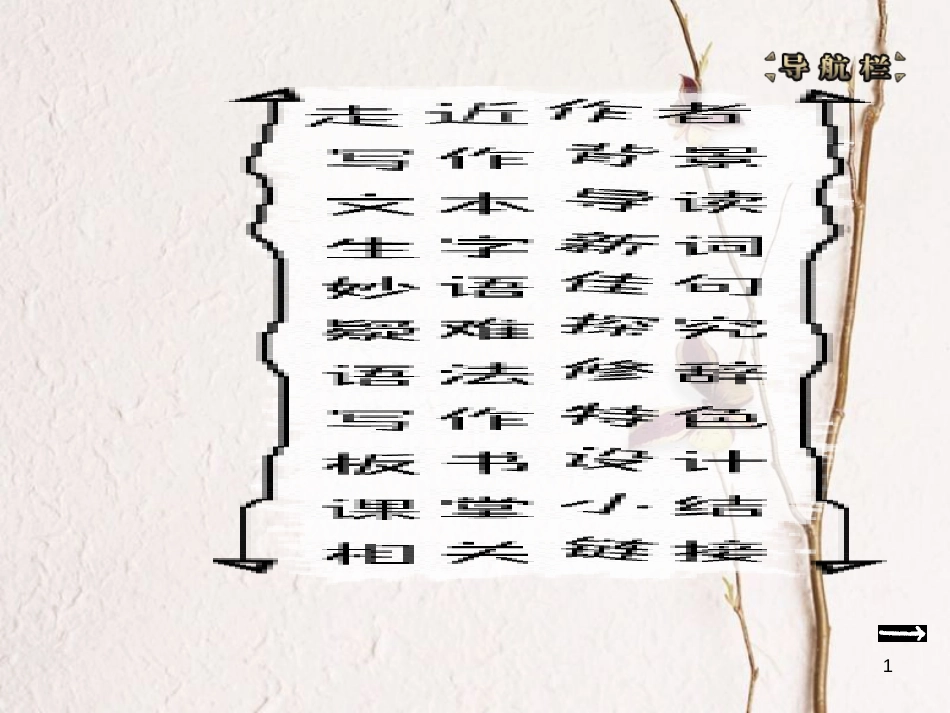 导航栏
走近作者
写作背景
文本导读
生字新词
妙语佳句
疑难探究
语法修辞
写作特色
板书设计
课堂小结
相关链接
1